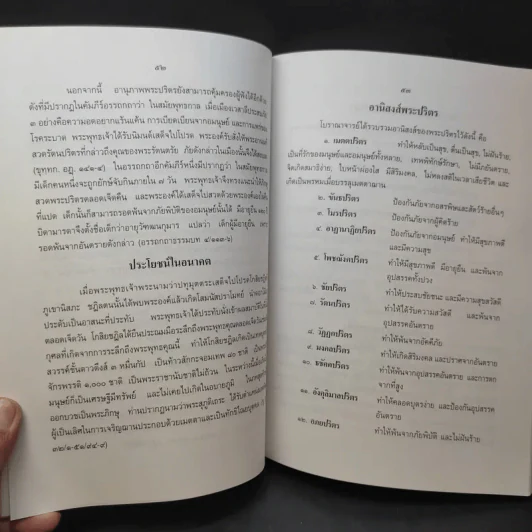 ๕๒
นอกจากนี้ อานุภาพพระปริตรยังสามารถคุ้มครองผู้ฟังได้อีกด้วย
ดังที่มีปรากฏในคัมภีร์อรรถกถาว่า ในสมัยพุทธกาล เมื่อเมืองเวสาลีประสบภัย
๓ อย่างคือความอดอยากแร้นแค้น การเบียดเบียนจากอมนุษย์ และการแพร่ของ
โรคระบาด พระพุทธเจ้าได้รับนิมนต์เสด็จไปโปรด พระองค์รับสั่งให้พระอานนท์
สวดรัตนปริตรที่กล่าวถึงคุณของพระรัตนตรัย ภัยดังกล่าวในเมืองนั้นจึงได้สงบลง
(ขุททก. อฏ. ๑๔๑-๔) ในอรรถกถาอีกคัมภีร์หนึ่งมีปรากฏว่า ในสมัย
มีเด็กคนหนึ่งจะถูกยักษ์จับกินภายใน ๗ วัน พระพุทธเจ้าจึงทรงแนะนำให้ภิกษุ
สวดพระปริตรตลอดเจ็ดคืน และพระองค์ได้เสด็จไปสวดด้วยพระองค์เองในคืน
ที่แปด เด็กนั้นก็สามารถรอดพ้นจากภัยพิบัติของอมนุษย์นั้นได้ มีอายุยืน ๑๒๐ ปี
บิดามารดาจึงตั้งชื่อเด็กว่าอายุวัฒนกุมาร แปลว่า เด็กผู้มีอายุยืน เพราะ
รอดพ้นจากอันตรายดังกล่าว (อรรถกถาธรรมบท ๔/๑๑๓-๖)
ประโยชน์ในอนาคต
เมื่อพระพุทธเจ้าพระนามว่าปทุมุตตระเสด็จไปโปรดโกสิยชฎิล
ภูเขานิสภะ ชฎิลตนนั้นได้พบพระองค์แล้วเกิดโสมนัสปราโมทย์
ประดับเป็นอาสนะที่ประทับ พระพุทธเจ้าได้ประทับนั่งเข้าผลสมาบัติ
ตลอดเจ็ดวัน โกสิยชฎิลได้ยืนประณมมือระลึกถึงพระพุทธคุณตลอดเจ็ดวัน
กุศลที่เกิดจากการระลึกถึงพระพุทธคุณนี้ ทำให้โกสิยชฎิลเกิดใน
สวรรค์ชั้นดาวดึงส์ ๓ หมื่นกัป เป็นท้าวสักกะจอมเทพ ๘๐ ชาติ
จักรพรรดิ ๑,๐๐๐ ชาติ เป็นพระราชานับชาติไม่ถ้วน ในระหว่างนั้น
มนุษย์ก็เป็นเศรษฐีมีทรัพย์ และไม่เคยไปเกิดในอบายภูมิ
ออกบวชเป็นพระภิกษุ ท่านปรากฏนามว่าพระสุภูติเถระ
ผู้เป็นเลิศในการเจริญฌานประกอบด้วยเมตตาและเป็นทักขิไณยบุคคล
๓๒/๑-๕๑/๙๔-๙)
๕๓
อานิสงส์พระปริตร
โบราณาจารย์ได้รวบรวมอานิสงส์ของพระปริตรไว้ดังนี้ คือ
๑. เมตตปริตร ทำให้หลับเป็นสุข, ตื่นเป็นสุข, ไม่ฝันร้าย,
เป็นที่รักของมนุษย์และอมนุษย์ทั้งหลาย, เทพพิทักษ์รักษา, ไม่มีภยันตราย,
จิตเกิดสมาธิง่าย, ใบหน้าผ่องใส, มีสิริมงคล, ไม่หลงสติในเวลาเสียชีวิต และ
เกิดเป็นพรหมเมื่อบรรลุเมตตาฌาน
๒. ขันธปริตร ป้องกันภัยจากอสรพิษและสัตว์ร้ายอื่นๆ
๓. โมรปริตร ป้องกันภัยจากผู้คิดร้าย
๔. อาฏานาฏิยปริตร ป้องกันภัยจากอมนุษย์ ทำให้มีสุขภาพดี
และมีความสุข
๕. โพชฌังคปริตร ทำให้มีสุขภาพดี มีอายุยืน และพ้นจาก
อุปสรรคทั้งปวง
๖. ชัยปริตร ทำให้ประสบชัยชนะ และมีความสุขสวัสดี
๗. รัตนปริตร ทำให้ได้รับความสวัสดี และพ้นจาก
อุปสรรคอันตราย
๘. วัฏฏกปริตร ทำให้พ้นจากอัคคีภัย
๙. มงคลปริตร ทำให้เกิดสิริมงคล และปราศจากอันตราย
๑๐. ธชัคคปริตร ทำให้พ้นจากอุปสรรคอันตราย และการตก
จากที่สูง
๑๑. อังคุลิมาลปริตร ทำให้คลอดบุตรง่าย และป้องกันอุปสรรค
อันตราย
๑๒. อภยปริตร ทำให้พ้นจากภัยพิบัติ และไม่ฝันร้าย